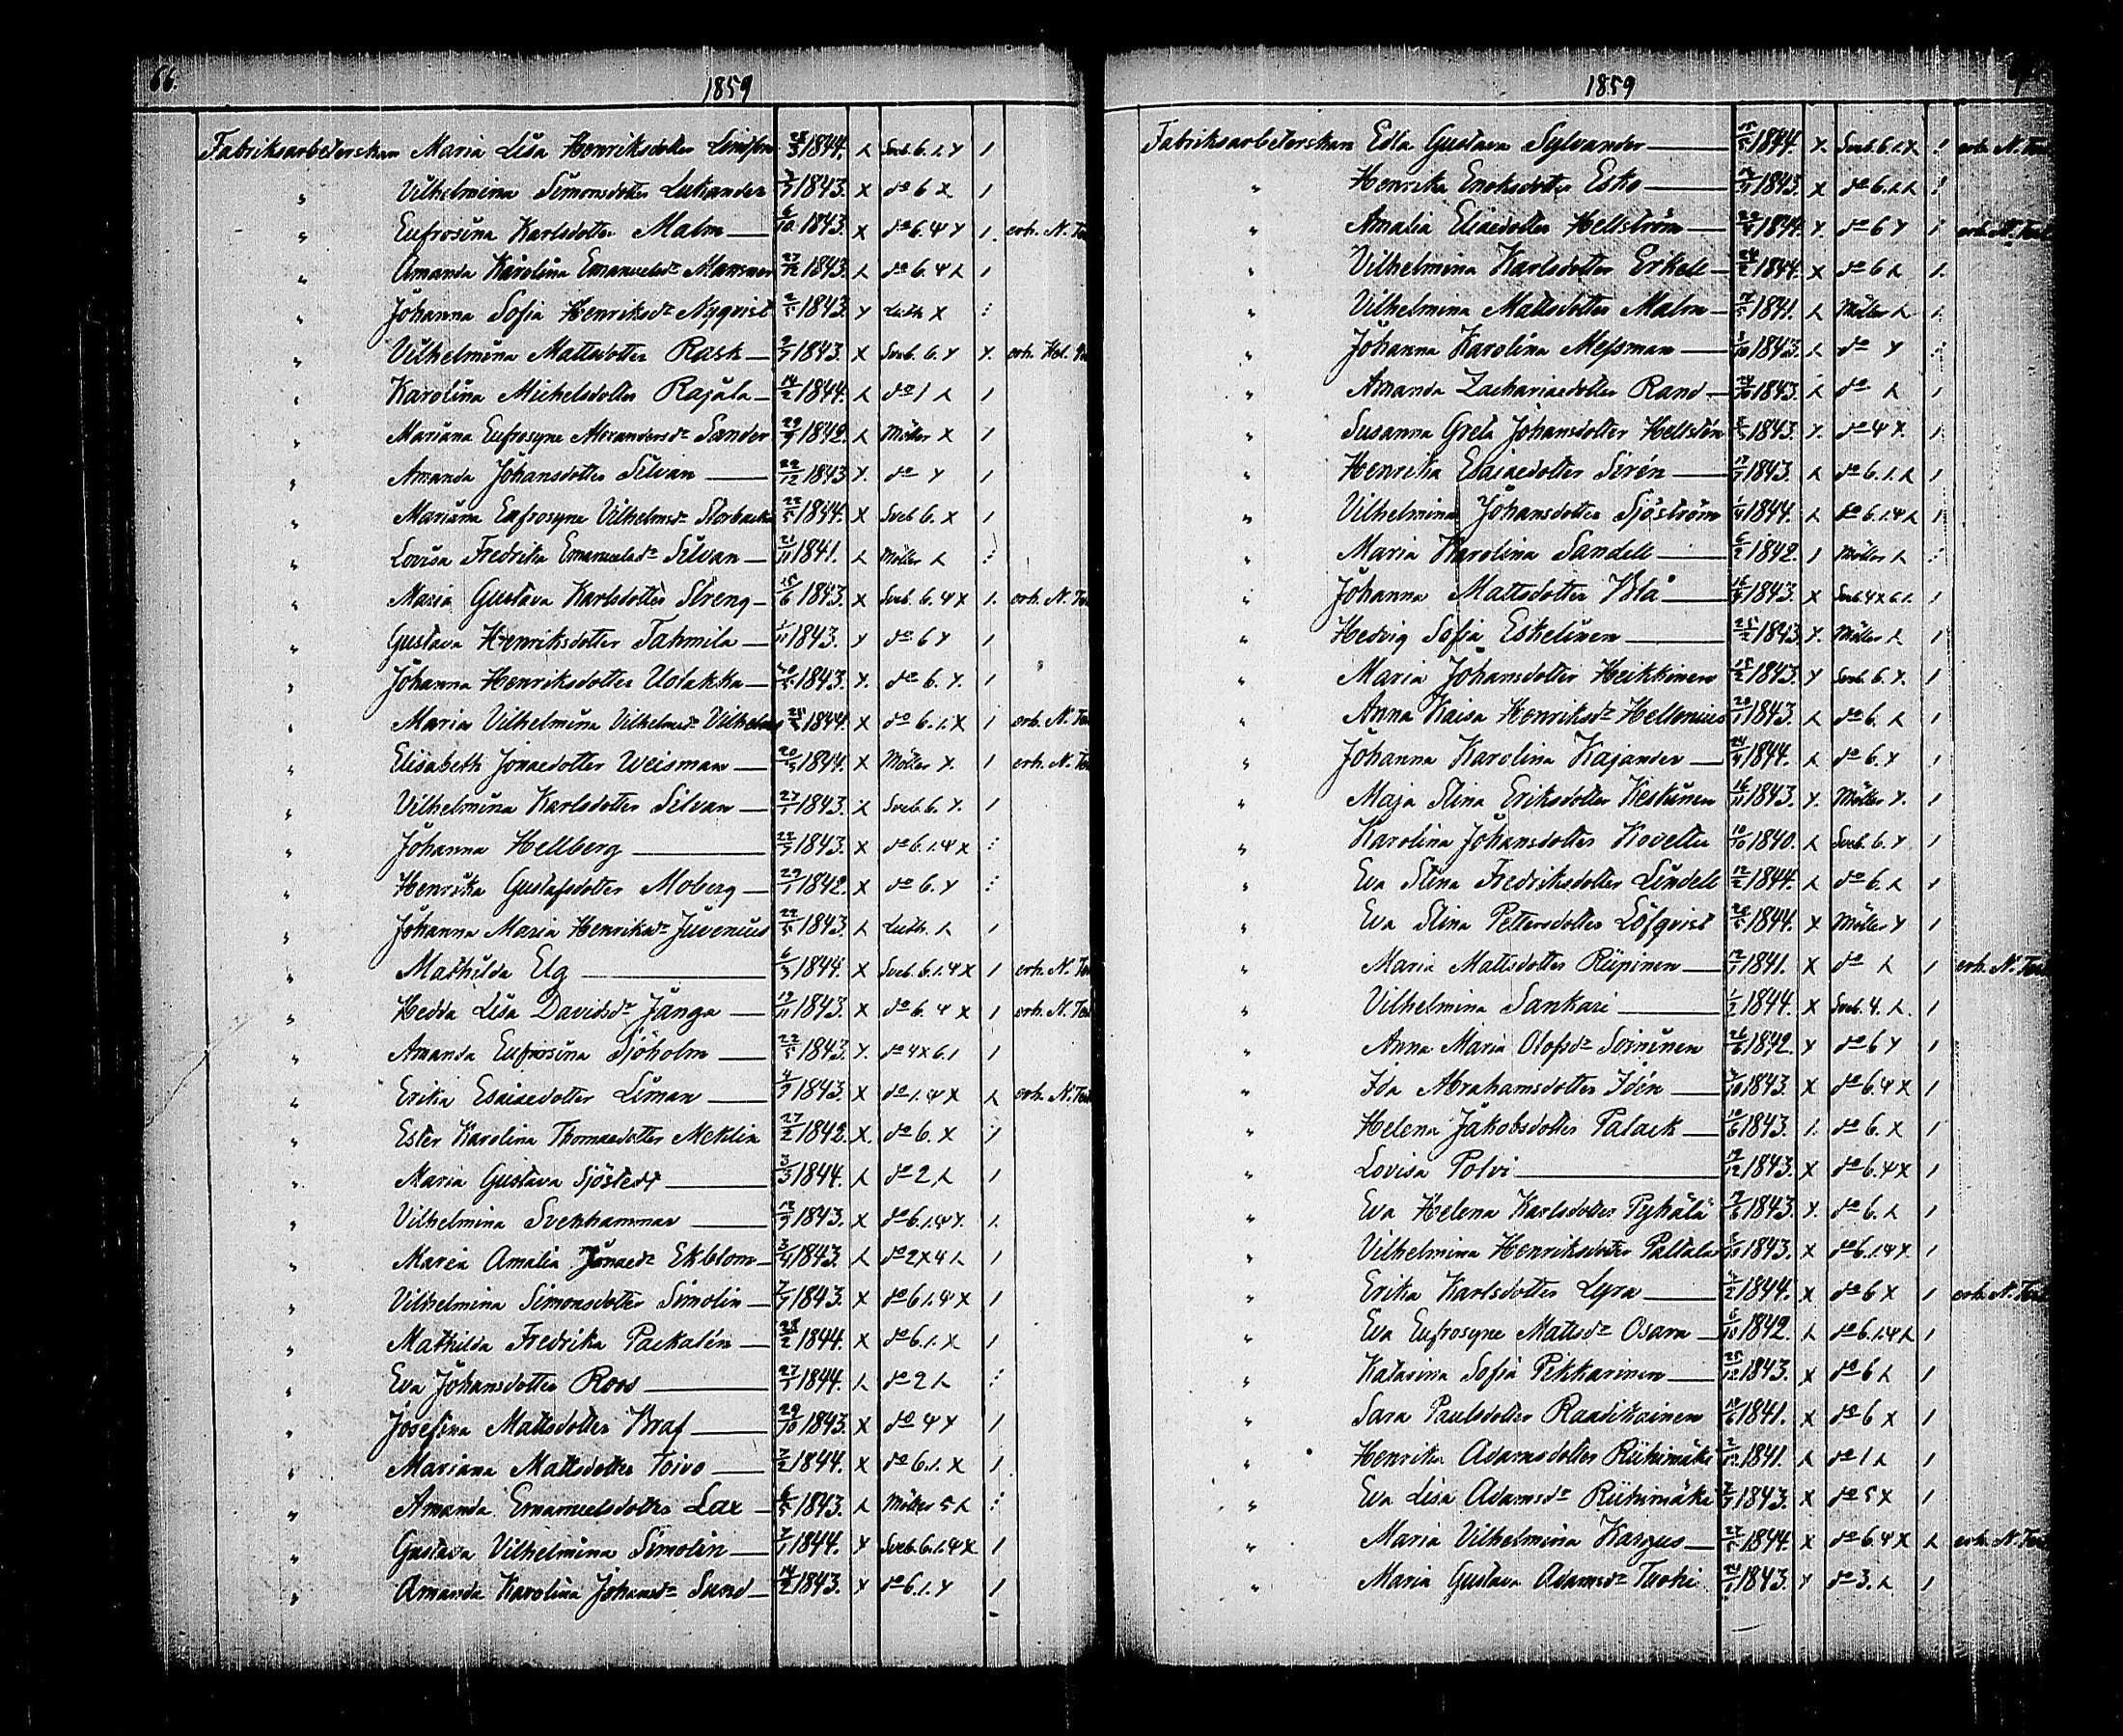 66.
1859
Fabriksarbeterskan Maria Lisa Henriksdotter 28/3 1844.
" Vilhelmina Simonsdotter Lukander 1843. x do 6 x 1
" Eufrosina Karlsdotter Malm 6/10 1843. x do 6. 4 y 1. erh. N.
" Amanda Karolina Emanuelsdr 27/12 1843. do 6. 4 1
" Johanna Sofia Henriksdr Nyqvist 2/5 1843 y Luth x
" Vilhelmina Mattsdotter Rask 1843. x Sveb. 6. y y. erh.
" Karolina Michelsdotter Rajala 14/2 1844. do 1 1
" Mariana Eufrosyne Alexandersdr Sander 1842. Möller x 1
" Amanda Johansdotter Silvan 22/12 1843 y. do y 1
" Mariana Eufrosyne Vilhelmsdr Storbacka 22/5 1844. x Sveb 6. x 1
" Lovisa Fredrika Emanuelsdr Silvan 21/11 1841. Möller
" Maria Gustava Karlsdotter Streng 15/6 1843. x Sveb. 6. 4 x 1. erh. N.
" Gustava Henriksdotter Tahmila 1843. y do 6 y 1
" Johanna Henriksdotter Uotakka 1843. y. do 6. y. 1
" Maria Vilhelmina Vilhelmsdr 1844. x do 6. 1. x 1 erh. N.
" Elisabeth Jonaedotter Weisman 20/3 1844. x Möller y. 1 erh. N.
" Vilhelmina Karlsdotter Silvan 27/1 1843. x Sveb. 6. y. 1
" Johanna Hellberg 1843. x do 6. 1. 4 x
" Henrika Gustafsdotter Moberg 29/1 1842. x do 6. y
" Johanna Maria Henriksdr Juvenius 22/5 1843. Luth. 1
" Mathilda Elg 6/3 1844. x Sveb. 6. 1. 4 x 1 erh. N.
" Hedda Lisa Davidsdr Jånga 19/11 1843. x do 6. 4 x 1 erh. N.
" Amanda Eufrosina Sjöholm 22/5 1843. y. do 4 x 6. 1 1
" Erika Esaiaedotter Liman 1843. x do 1. 4 x erh. N.
" Ester Karolina Thomaedotter Meklin 27/2 1842. x do 6. x 1
" Maria Gustava Sjöstedt 3/3 1844. do 2 1
" Vilhelmina Svekhammar 1843. x do 6. 1. 4 y. 1.
" Maria Amalia Jonaedr Ekblom 3/4 1843. do 2 x 4 1
" Vilhelmina Simonsdotter Simolin 1843. x do 6 1. 4 x 1
" Mathilda Fredrika Packalén 28/2 1844. x do 6. 1. x 1
" Eva Johansdotter Roos 27/1 1844. do 2
" Josefina Mattsdotter Braf 29/10 1843. x do 4 y 1
" Mariana Mattsdotter Toivo 1844. x do 6. 1. x 1
" Amanda Emanuelsdotter Lax 6/5 1843. Möller 5
" Gustava Vilhelmina Simolin 1844. y Sveb. 6. 1. 4 x 1
" Amanda Karolina Johansdr Sund 14/2 1843. y do 6. 1. y 1
1859
Fabriksarbeterskan Edla Gustava Sylvander 1844 y. Sveb. 6. 1. x erh. N.
" Henrika Enoksdotter Esko 1843. x do 6.
" Amalia Eliaedotter Hellström 1844. y. do 6 y erh. N.
" Vilhelmina Karlsdotter Erkell 24/2 1844. x do 6 1.
" Vilhelmina Mattsdotter Malm 1841. Möller 1.
" Johanna Karolina Messman 1843. do y
" Amanda Zachariaedotter Rand 1843. do 1
" Susanna Greta Johansdotter Hellstén 1843. y. do 4 x. 1
" Henrika Esaiaedotter Sirén 1843. do 6. 1. 1
" Vilhelmina Johansdotter Sjöström 1844. do 6. 1. 4 1
" Maria Karolina Sandell 6/2 1842. 1 Möller
" Johanna Mattsdotter Blå 1843. x Sveb. 4 x 6. 1. 1
" Hedvig Sofia Eskelinen 25/2 1843 y. Möller 1
" Maria Johansdotter Heikkinen 15/2 1843. y Sveb. 6. y. 1
" Anna Kaisa Henriksdr Hellenius 20/1 1843. do 6. 1
" Johanna Karolina Kajander 1844. do 6. y 1
" Maja Stina Eriksdotter Keskinen 16/11 1843. y. Möller y. 1
" Karolina Johansdotter Kovella 10/10 1840. Sveb. 6. y 1
" Eva Stina Fredriksdotter Lindell 12/2 1844. do 6. 1
" Eva Stina Pettersdotter Löfqvist 1844. x Möller y 1
" Maria Mattsdotter Riipinen 1841. x do 1 erh. N.
" Vilhelmina Sankari 1844. x Sveb. 4. 1
" Anna Maria Olofsdr Soininen 26/6 1842. y do 6 y 1
" Ida Abrahamsdotter Idén 1843 x do 6. 4 x 1
" Helena Jakobsdotter Palack 1843. 1. do 6. x 1
" Lovisa Polvi 1843. x do 6. 4 x 1
" Eva Helena Karlsdotter Pyhälä 1843. y. do 6. 1
" Vilhelmina Henriksdotter 1843. x do 6. 1. 4 x. 1
" Erika Karlsdotter Lyra 1844. x do 6 x 1 erh. N.
" Eva Eufrosyne Mattsdr Osara 6/10 1842. do 6. 1. 4 1
" Katarina Sofia Pikkarinen 25/12 1843. x do 6 1
" Sara Paulsdotter Raatikainen 1841. x do 6 x 1
" Henrika Adamsdotter Riihimäki 1841. do 1 1
" Eva Lisa Adamsdr Riihimäki 1843. x do 5 x 1
" Maria Vilhelmina Kargus 1844. x do 6. 4 x erh. N.
" Maria Gustava Adamsdr Tuohi 1843. y do 3. 1